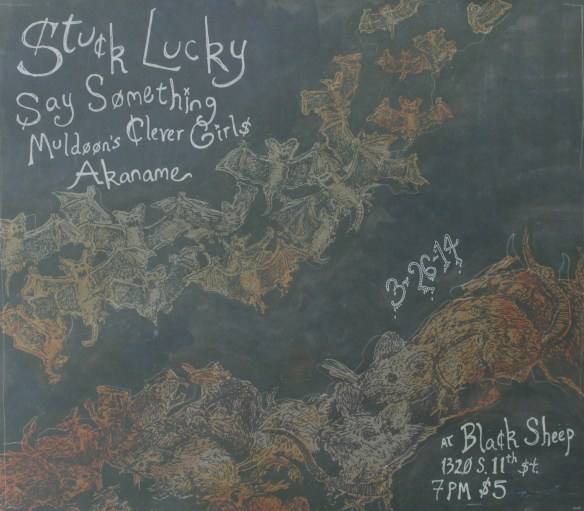 Stuck Lucky
Say Sømething
Muldøøn's Clever Girl$
Akaname
3-26-14
AT Black Sheep
1320 S. 11th St.
7PM $5